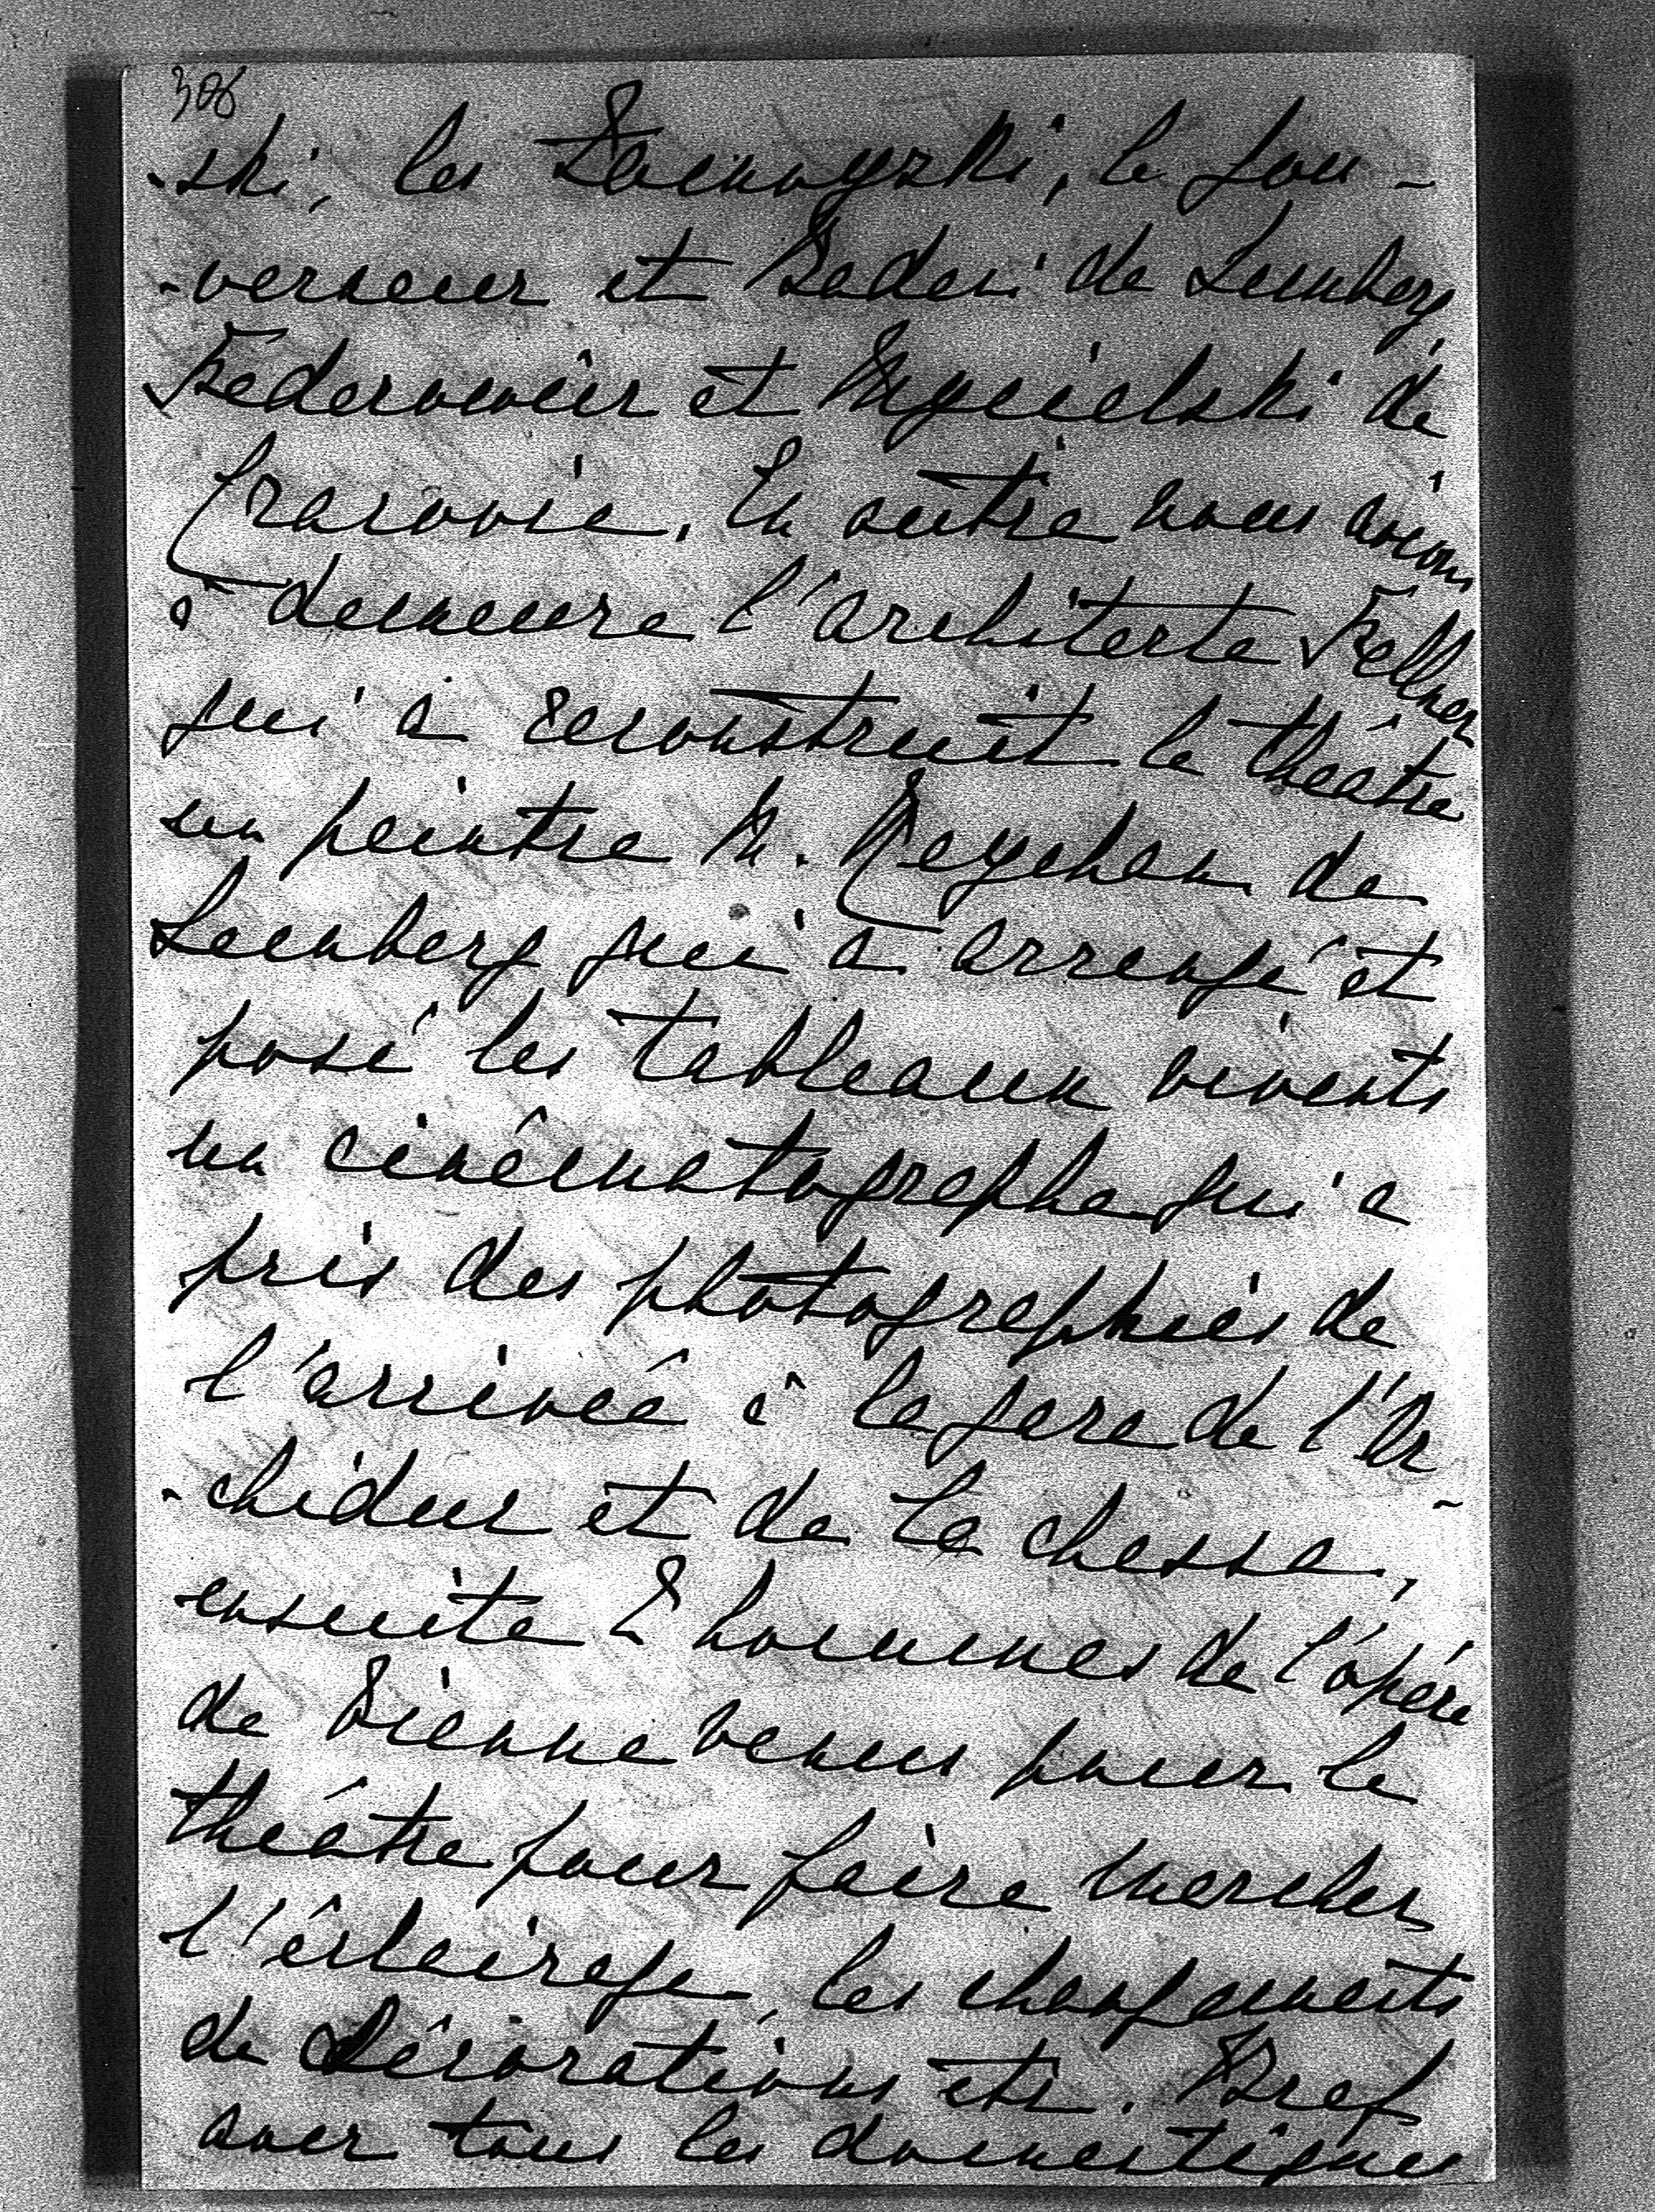 306
-ski, les Zamoyski, le Gou-
-verneur et Badeni de Lemberg
Federowicz et Mycielski de
Cracovie. En outre nous avions
à demeure l'architecte Fellner
qui a reconstruit le théâtre
un peintre M. Reychan de
Lemberg qui a arrangé et
posé les tableaux vivants
un cinématographe qui a
pris des photographies de
l'arrivée à la gare de l'Ar-
-chiduc et de la chasse,
ensuite 2 hommes de l'opéra
de Vienne venus pour le
théâtre pour faire marcher
l'éclairage, les changements
de décorations etc. Bref
avec tous les domestiques